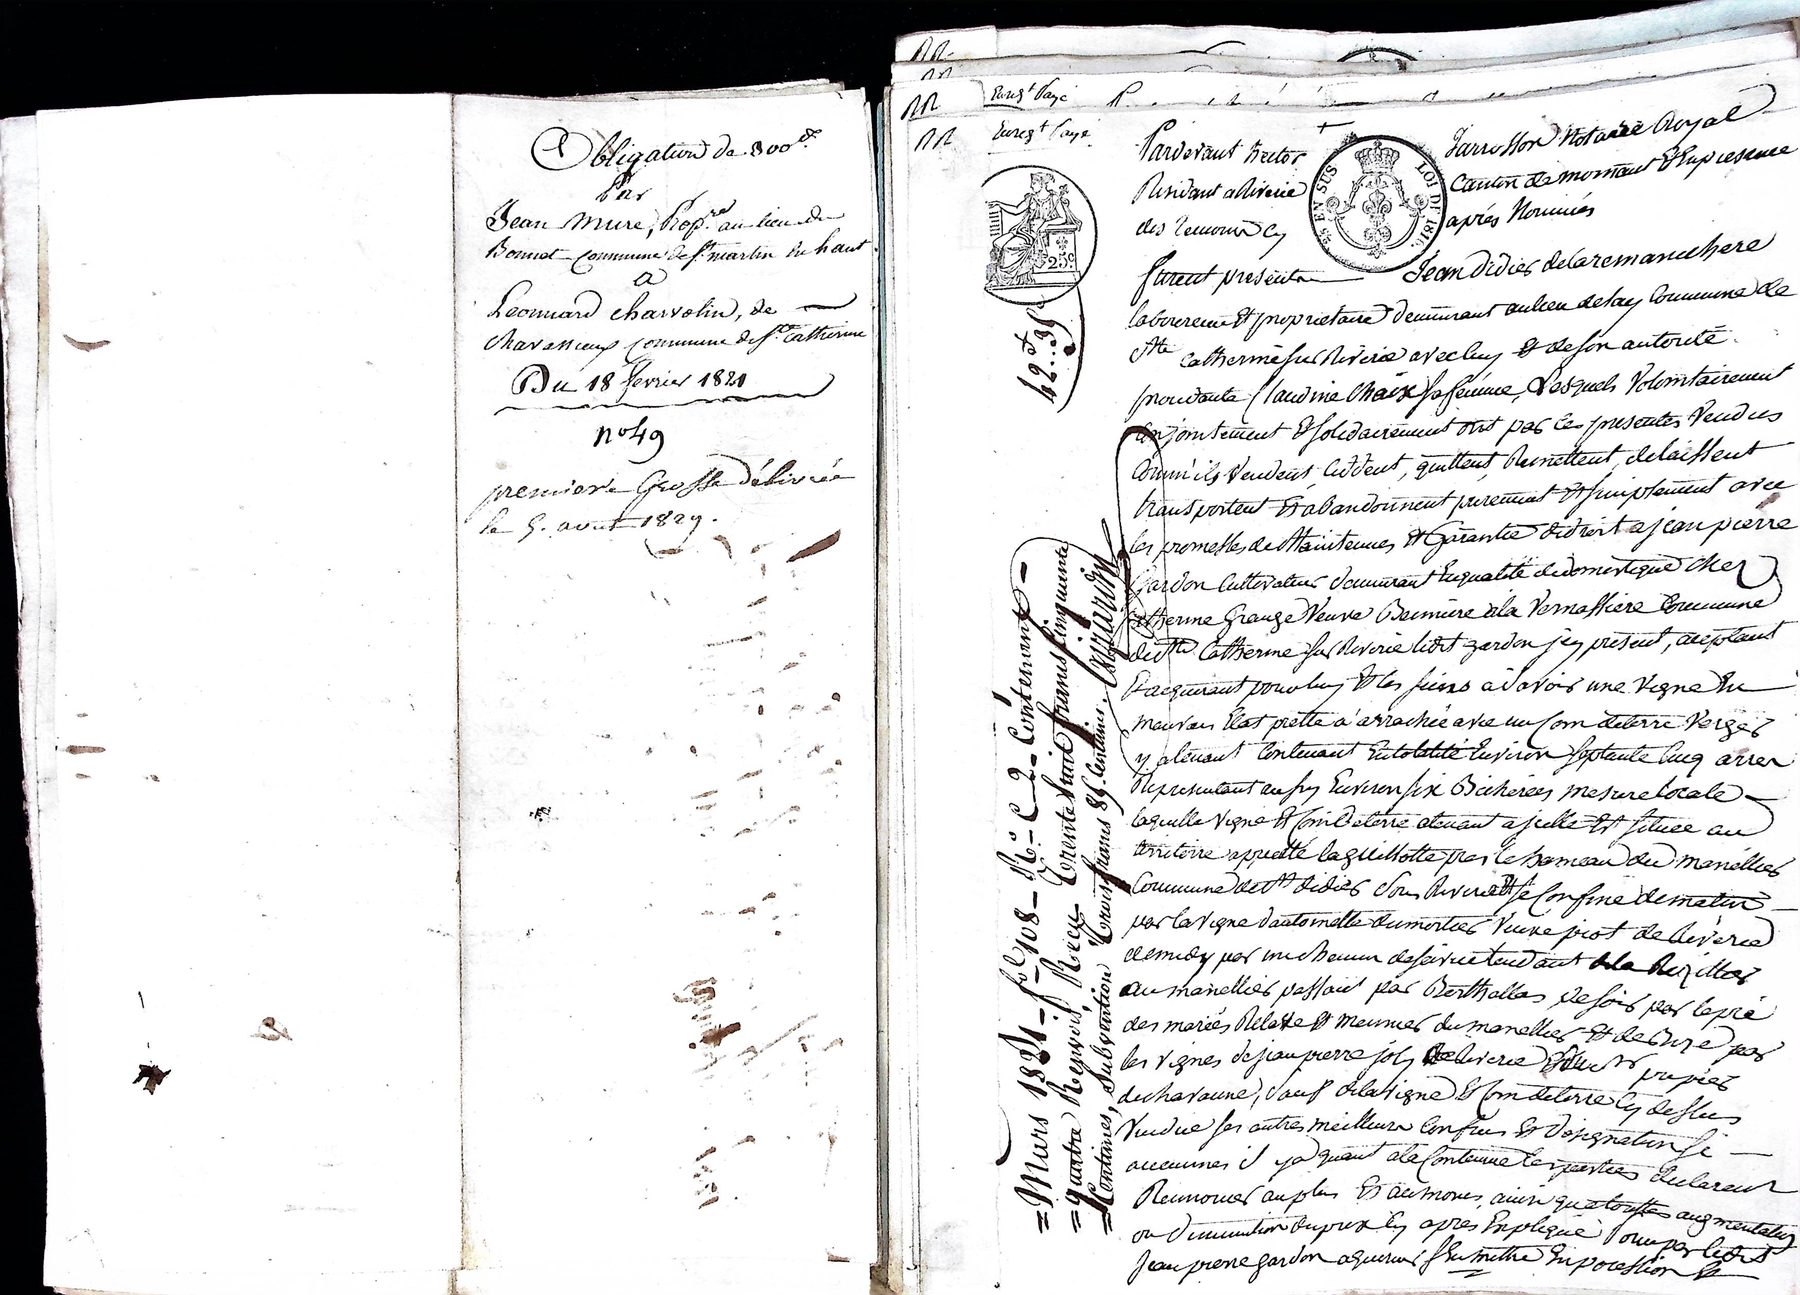 Obligation de 800 f.
Par
Jean Mure, Prop.re au lieu de
Bonnet commune de St. martin en haut
A
Leonnard charvolin, de
chavassieux commune de Ste. Catherine
Du 18 fevrier 1821
no 49
premiere Grosse délivrée
le 5. aout 1829.
Enregt Payé
Enregt Payé
EN SUS
LOI DE 1816
25c
42 f 35 c
Pardevant hector Jarrosson Notaire Royal
Residant a Riverie Canton de mornant Et En presence
des temoins Cy après Nommés
furent presents Jean Didier delaremanichere
laboureur Et proprietaire demeurant au lieu de Commune de
Ste Catherine sur Riverie avec luy Et de son autorité
procedante Claudine Chaix sa femme, Lesquels Volontairement
Conjointement Et solidairement ont par Ces presentes Vendus
Comm'ils Vendent, Ceddent, quittent, Remettent, delaissent
transportent Et abandonnent purement Et simplement avec
les promesses de Maintenues Et Garantie de droit a jean pierre
Gardon Cultivateur demeurant En qualité de domestique chez
Catherine Grange Veuve a la Vernassiere Commune
de Ste Catherine sur Riverie ledit gardon icy present, aceptant
Et acquerant pour luy Et les siens a savoir une vigne En
mauvais Etat prette a arrachée avec un Coin de terre Verger
y atenant Contenant En totalité Environ septante Cinq arres
Representant au fur Environ six Bicherées mesure locale
laquelle vigne Et Coin de terre atenant a icelle Est située au
territoire appellé la guillotte pres le hameau du manéllier
Commune de St didier sous Riverie Et se Confine de matin
par la vigne d'antoinette dumortier Veuve piot de Riverie
de midy par un chemin de service tendant
au manellier passant par de soir par le pré
des mariés Relave Et meunier du manellier Et de Bize par
les vignes de jean pierre joly de Riverie
de chavanne, sauf de la vigne Et Coin de terre Cy dessus
Vendue ses autres meilleurs Confins Et designation si
aucunes il y a quant a la Contenue les parties declarent
Renoncer au plus Et au moins, ainsi qu'a touttes augmentation
ou diminution du prix Cy apres Expliqué pour par ledit
Jean pierre gardon acquereur s'En mettre En possession Et
= Mars 1821 - fol 108 - Ro - C 2 - Contenant -
= quatre Renvois, Reçu Trente huit francs Cinquante
= Centimes, Subvention Trois francs 85 Centimes.